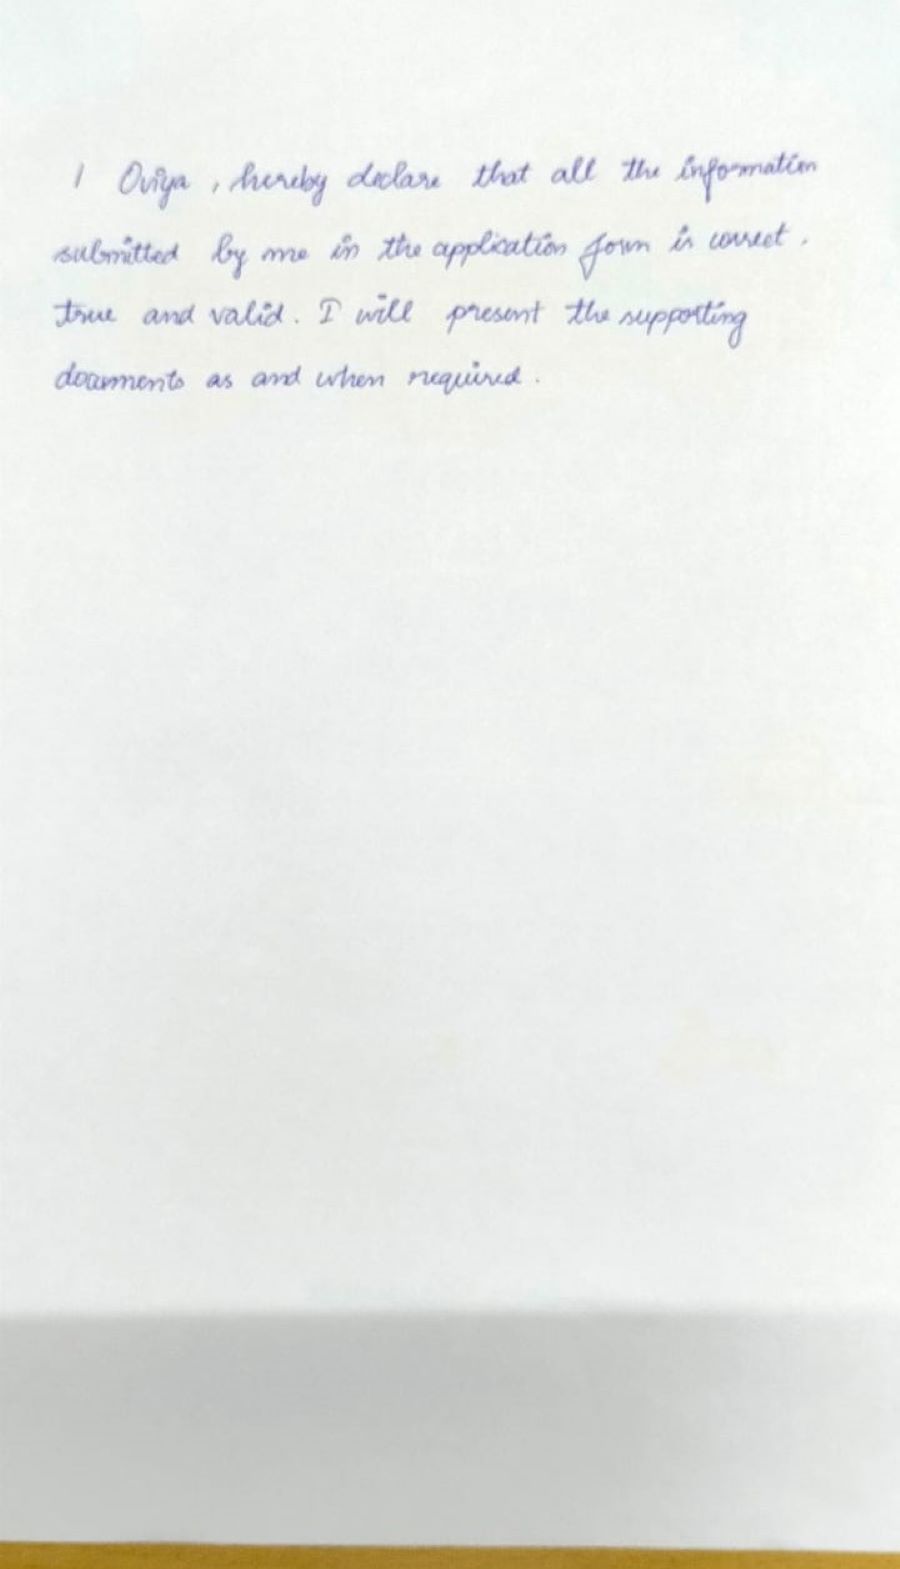 I Oviya, hereby declare that all the information
submitted by me in the application form is correct,
true and valid. I will present the supporting
documents as and when required.